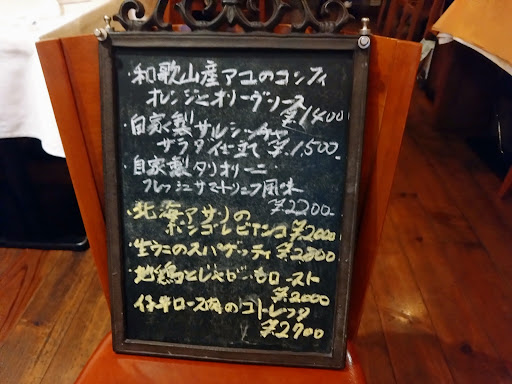 ・和歌山産アユのコンフィ
オレンジとオリーヴソース
¥1400
・自家製サルシッチャ
サラダ仕立て ¥1,500-
・自家製タリオリーニ
フレッシュサマートリュフ風味
¥2200-
・北海アサリの
ボンゴレビアンコ ¥2000
・生ウニのスパゲッティ ¥2800
・地鶏とじゃがいもロースト
¥2000
・仔牛ロース肉のコトレッタ
¥2700